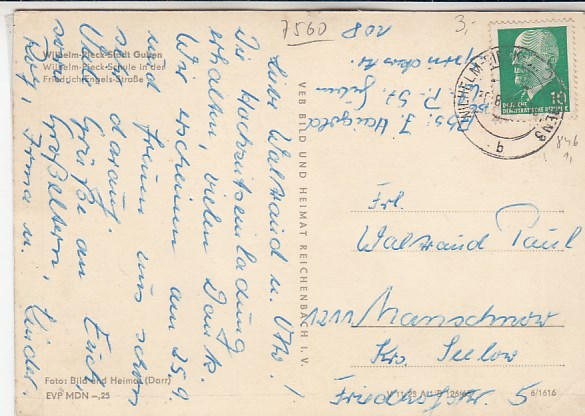 7560
3,-
Wilhelm-Pieck-Stadt Guben
Wilhelm-Pieck-Schule in der
Friedrich-Engels-Straße
Liebe Waltraud u. Uhw!
Die Hochzeitseinladung
erhalten, vielen Dank.
Wir erscheinen am 25.9.
und freuen uns schon
sehr darauf.
Viele Grüße an Euch,
sowie Großeltern,
Kurt, Irma u. Kinder.
Abs: J.
P. St. Guben
208
VEB BILD UND HEIMAT REICHENBACH I. V.
10
DEUTSCHE
DEMOKRATISCHE REPUBLIK
WILHELM-PIECK-
GUBEN 3
b
846
1,
Frl.
Waltraud Paul
Manschnow
Krs. Seelow
5
Foto: Bild und Heimat (Darr)
EVP MDN -,25
6/1616